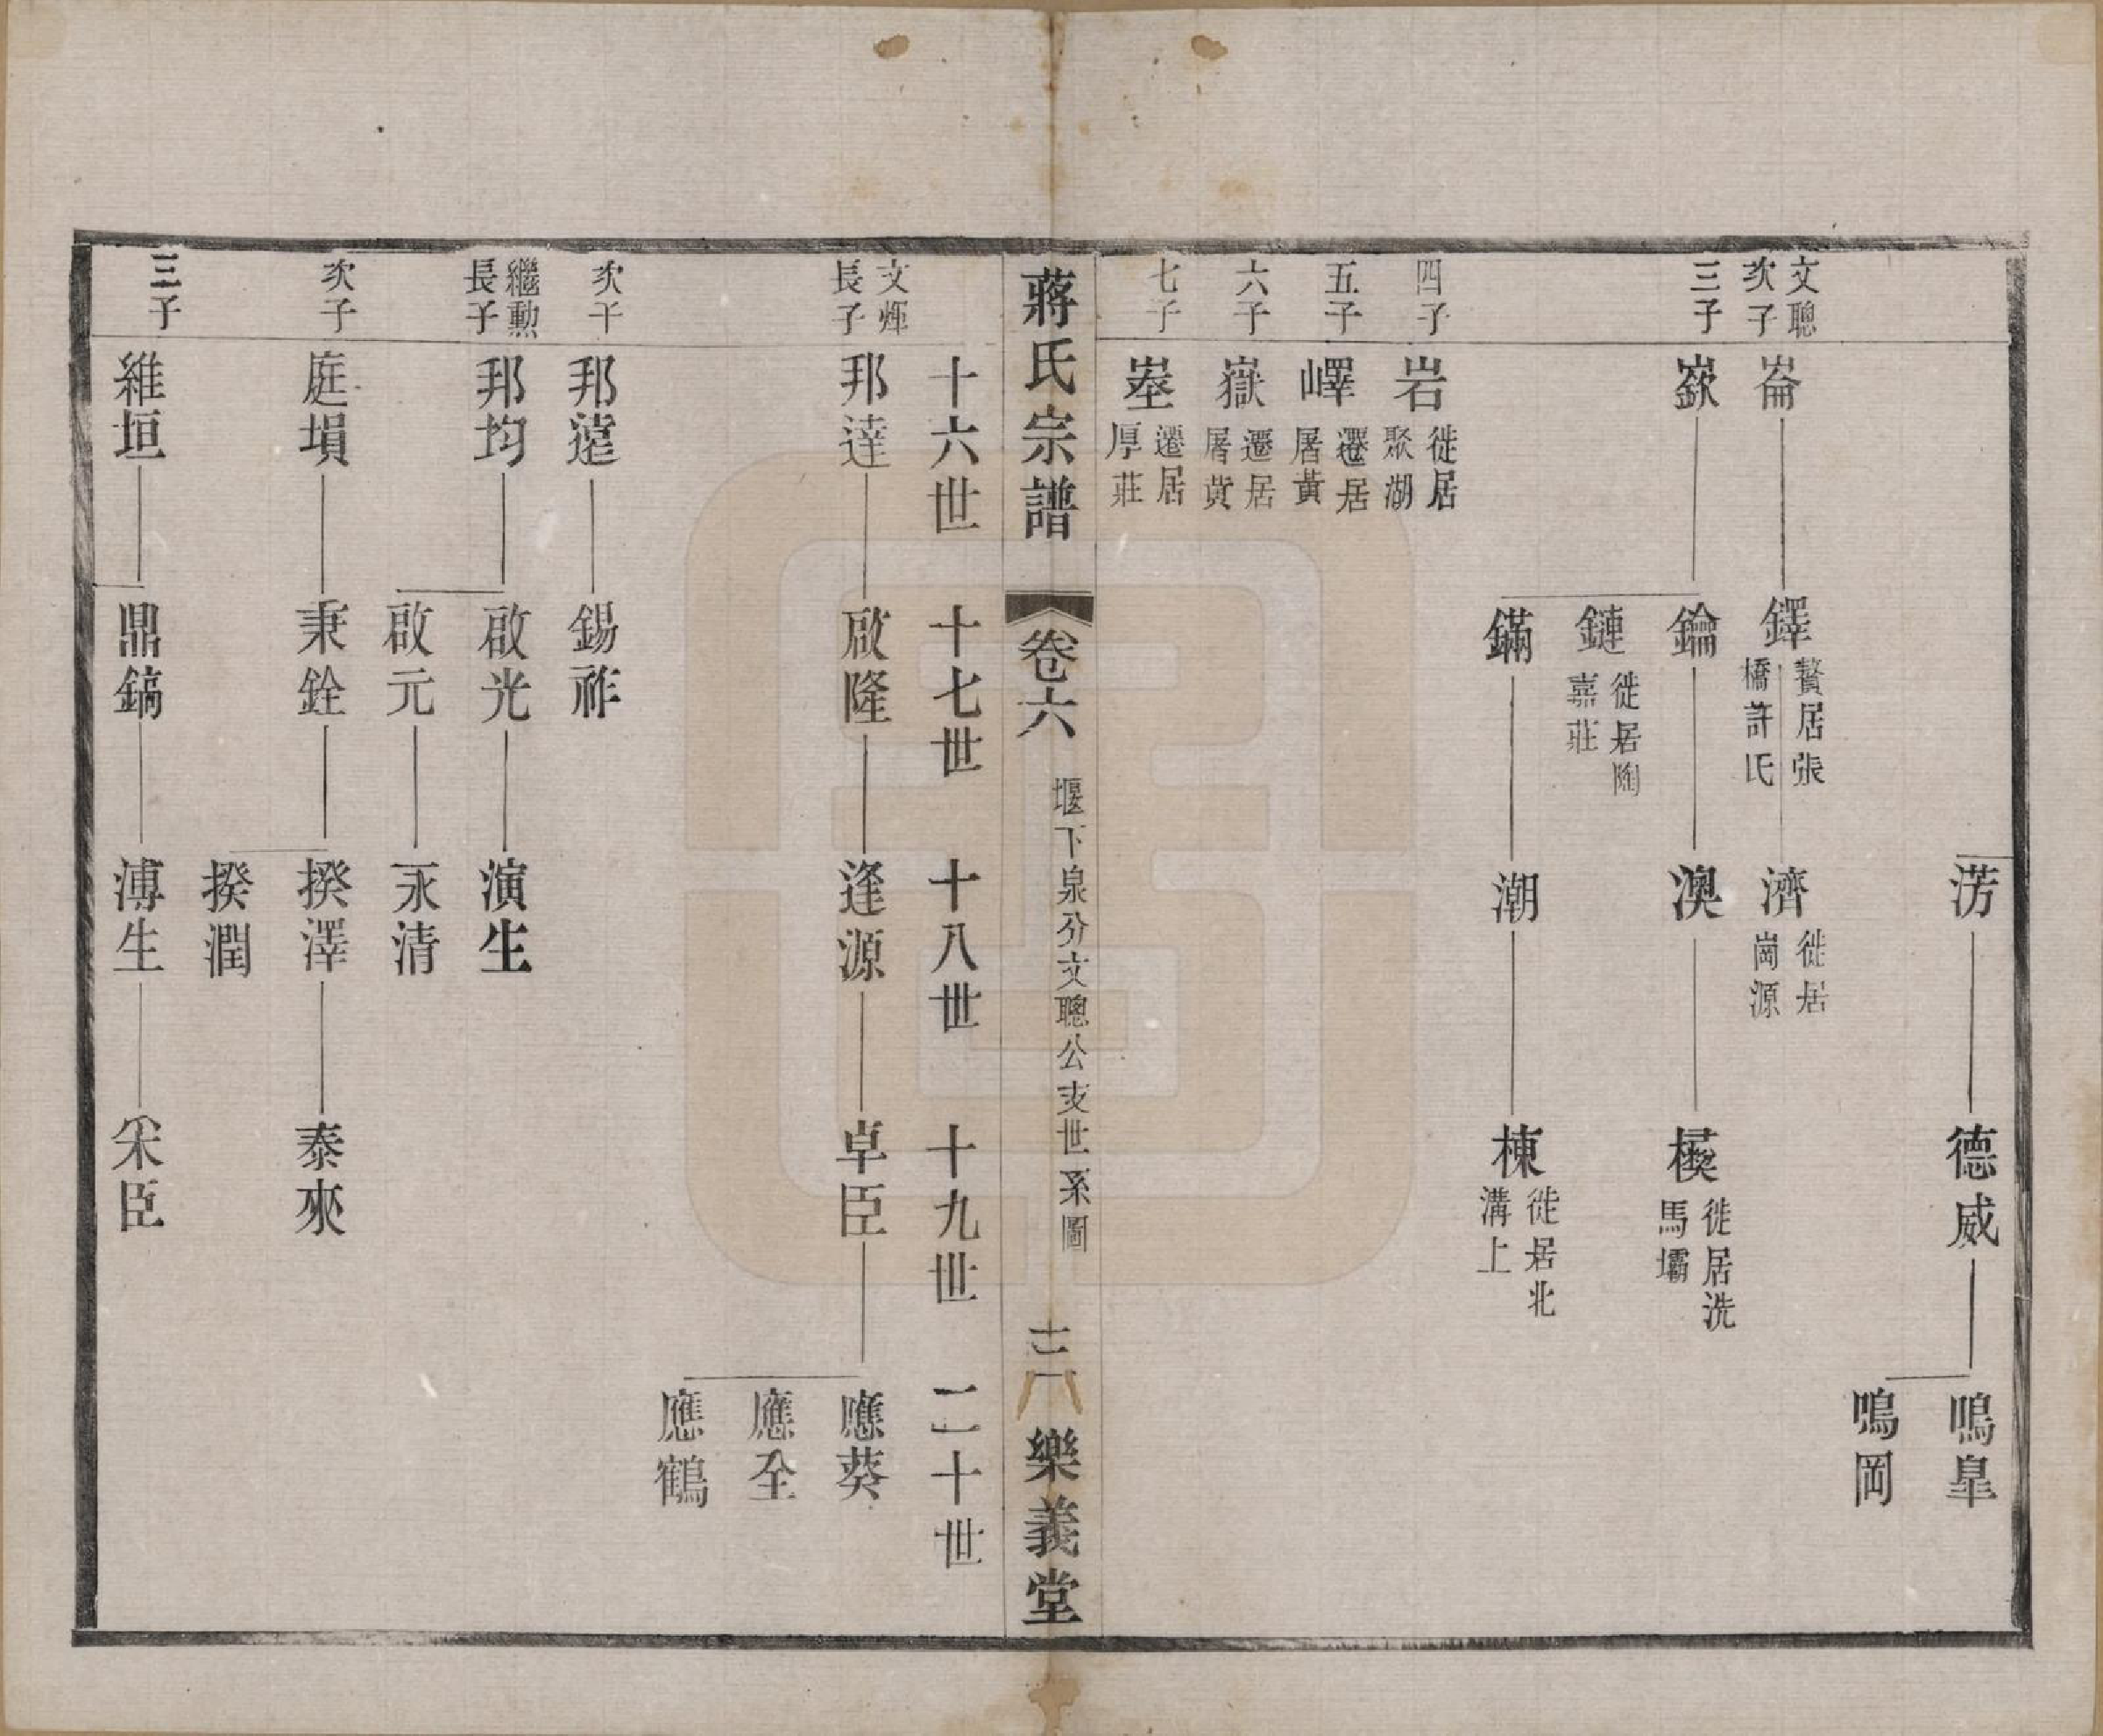 芳
德威
鳴皐
鳴岡
文聰
次子
崙
鐸
贅居張
橋許氏
濟
徙居
崗源
三子
嶔
鑰
澳
徙居洗
馬壩
鏈
徙居陶
嘉莊
鏋
潮
棟
徙居北
溝上
四子
岩
徙居
聚湖
五子
嶧
遷居
屠黃
六子
嶽
遷居
屠黃
七子
遷居
厚莊
蔣氏宗譜
卷六
堰下泉分文聰公支世系圖
樂義堂
十六世
十七世
十八世
十九世
二十世
文煇
長子
邦達
啟隆
逢源
卓臣
應葵
應全
應鶴
次子
邦蘧
錫祚
繼勳
長子
邦均
啟光
演生
啟元
永清
次子
庭塤
秉銓
揆澤
泰來
揆潤
三子
維垣
鼎鎬
溥生
宋臣